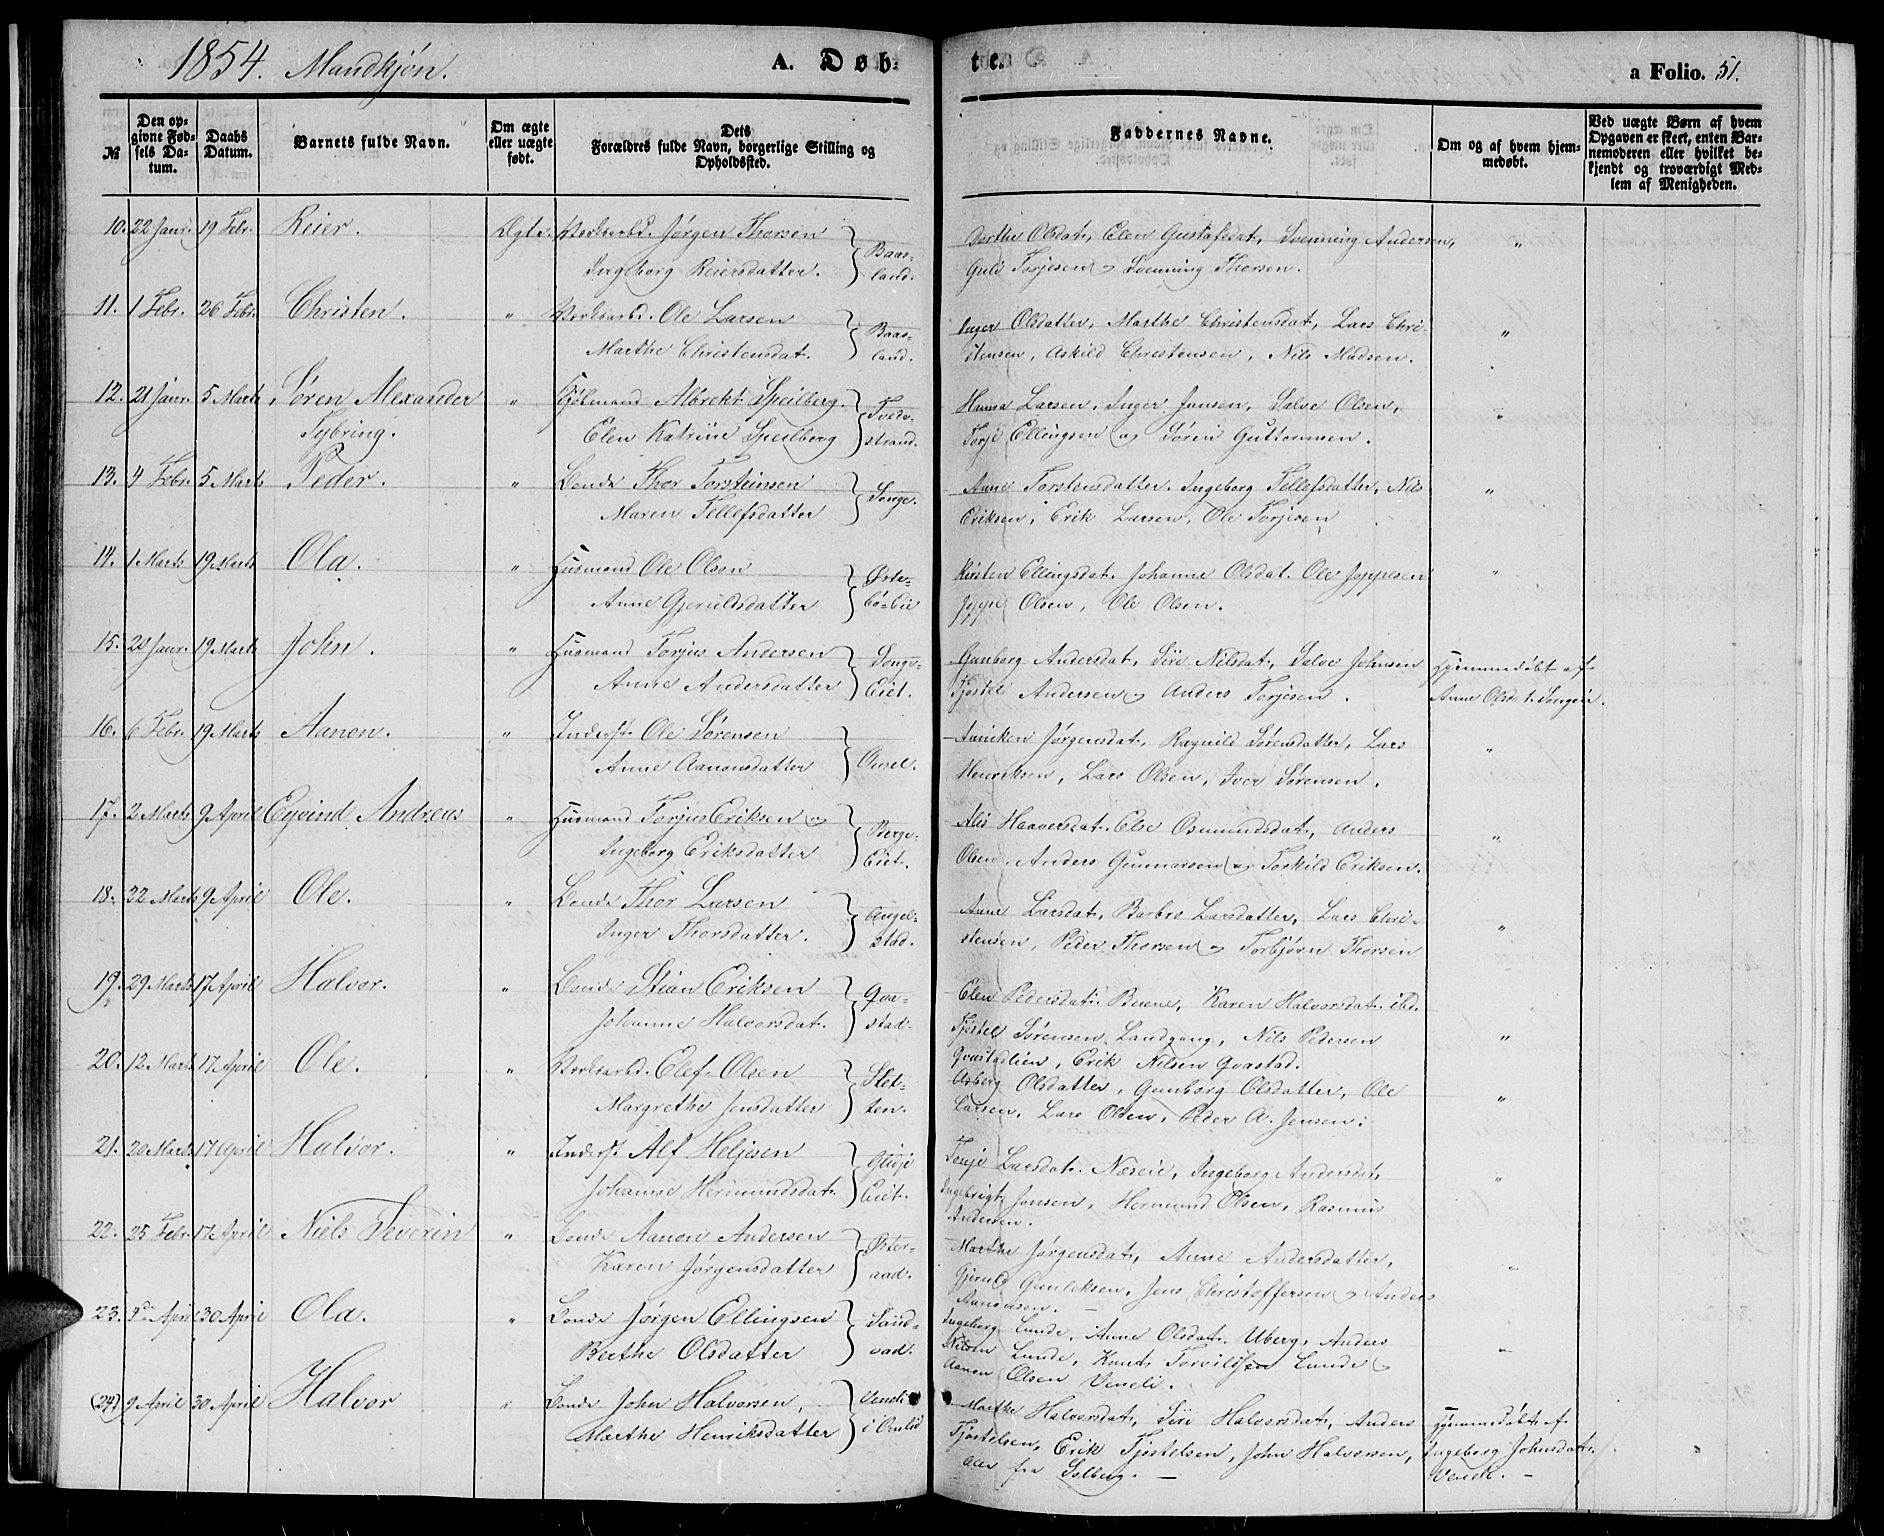 1854. Mandkjøn.
A. Døb-
te.
a Folio. 51.
№
Den op-
givne Fød-
sels Da-
tum.
Daabs
Datum.
Barnets fulde Navn.
Om ægte
eller uægte
født.
Dets
Forældres fulde Navn, borgerlige Stilling og
Opholdssted.
Faddernes Navne.
Om og af hvem hjem-
medøbt.
Ved uægte Børn af hvem
Opgaven er skeet, enten Bar-
nemoderen eller hvilket be-
kjendt og troværdigt Med-
lem af Menigheden.
10. 22 Janr. 19 Febr. Reier. Ægte. Verksarbd. Jørgen Thorsen
Ingeborg Reiersdatter. Baas-
land.
Dorthe Olsdat, Elen Gustafsdat, Svenning Andersen,
Guli Torjesen og Svenning Thorsen.
"
11. 1 Febr. 26 Febr. Christen. " Verksarbd. Ole Larsen
Marthe Christensdat. Baas-
land.
Inger Olsdatter, Marthe Christensdat, Lars Chri-
stensen, Askild Christensen, Nils Madsen.
"
12. 21 Janr. 5 Marts Søren Alexander
Tybring. " Kjøbmand Albrekt Speilberg.
Elen Katrine Speilberg Tvede-
strand.
Hanna Larsen, Inger Jansen, Salve Olsen,
Torje Ellingsen og Søren Guttormsen.
"
13. 4 Febr. 5 Marts Peder. " Bonde Thor Torsteinsen
Maren Tellefsdatter Songe.
Anne Torstensdatter. Ingeborg Tellefsdatter, Nils
Eriksen, Erik Larsen, Ole Torjesen
"
14. 1 Marts 19 Marts Ola. " Husmand Ole Olsen
Anne Gjeruldsdatter Øste-
bø-Eie
Kirsten Ellingsdat. Johanne Olsdat. Ole Jeppesen
Jeppe Olsen, Ole Olsen.
"
15. 20 Janr. 19 Marts John. " Husmand Torjus Andersen
Anne Andersdatter Songe-
Eiet.
Gunborg Andersdat, Siri Nilsdat, Salve Johnsen
Tjøstel Andersen og Anders Torjesen.
Hjemmedøbt af
Anne Olsdat. Songeie.
16. 6 Febr. 19 Marts Aanon. " Inderst. Ole Sørensen
Anne Aanonsdatter
Anniken Jørgensdat, Ragnild Sørensdatter, Lars
Henriksen, Lars Olsen, Iver Sørensen.
"
17. 2 Marts 9 April Eyvind Andreas " Husmand Torjus Eriksen og
Ingeborg Eriksdatter Berge-
Eiet.
Alis Haaversdat. Else Osmundsdat, Anders
Olsen, Anders Gunnarsen og Torkild Eriksen.
"
18. 22 Marts 9 April Ole. " Bonde Thor Larsen
Inger Thorsdatter. Angel-
stad.
Anne Larsdat, Barbro Larsdatter, Lars Chri-
stensen, Peder Thorsen og Torbjørn Thorsen
"
19. 29 Marts 17 April Halvor. " Bonde Stian Eriksen
Johanne Halvorsdat. Qva-
stad.
Elen Pedersdat. Buene, Karen Halvorsdat. ibd.
Tjøstel Sørensen Landgang, Nils Pedersen
Qvastadlien, Erik Nilsen Qvastad.
"
20. 12 Marts 17 April Ole. " Verksarbd. Elef Olsen
Margrethe Jensdatter Stet-
ten.
Asberg Olsdatter, Gunborg Olsdatter, Ole
Larsen, Lars Olsen, Peder A. Jensen.
"
21. 20 Marts 17 April Halvor. " Inderst Alf Heljesen
Johanne Hermundsdat.
Eiet.
Tenje Larsdat. Næseie, Ingeborg Andersdat,
Ingebrigt Jensen, Hermund Olsen, Rasmus
Andersen.
"
22. 25 Febr. 17 April Niels Severin " Bonde Aanon Andersen
Karen Jørgensdatter Øster-
aad.
Marthe Jørgensdat, Anne Andersdatter,
Gjeruld Gunleksen, Jens Christoffersen og Anders
Aanonsen. —
"
23. 9de April 30 April Ola. " Bonde Jørgen Ellingsen
Berthe Olsdatter Sand-
vad.
Ingeborg Lunde, Anne Olsdat. Uberg, Anders
Nilsen Lunde, Knut Torvildsen Lunde og
Aanon Olsen Veneli.
"
(24) 9 April 30 April Halvor " Bonde John Halvorsen,
Marthe Henriksdatter Veneli
i Omlid
Marthe Halvorsdat, Siri Halvorsdat, Anders
Tjøstelsen, Erik Tjøstelsen, John Halvorsen,
alle fra Solberg. —
Hjemmedøbt af
Ingeborg Johnsdat.
—